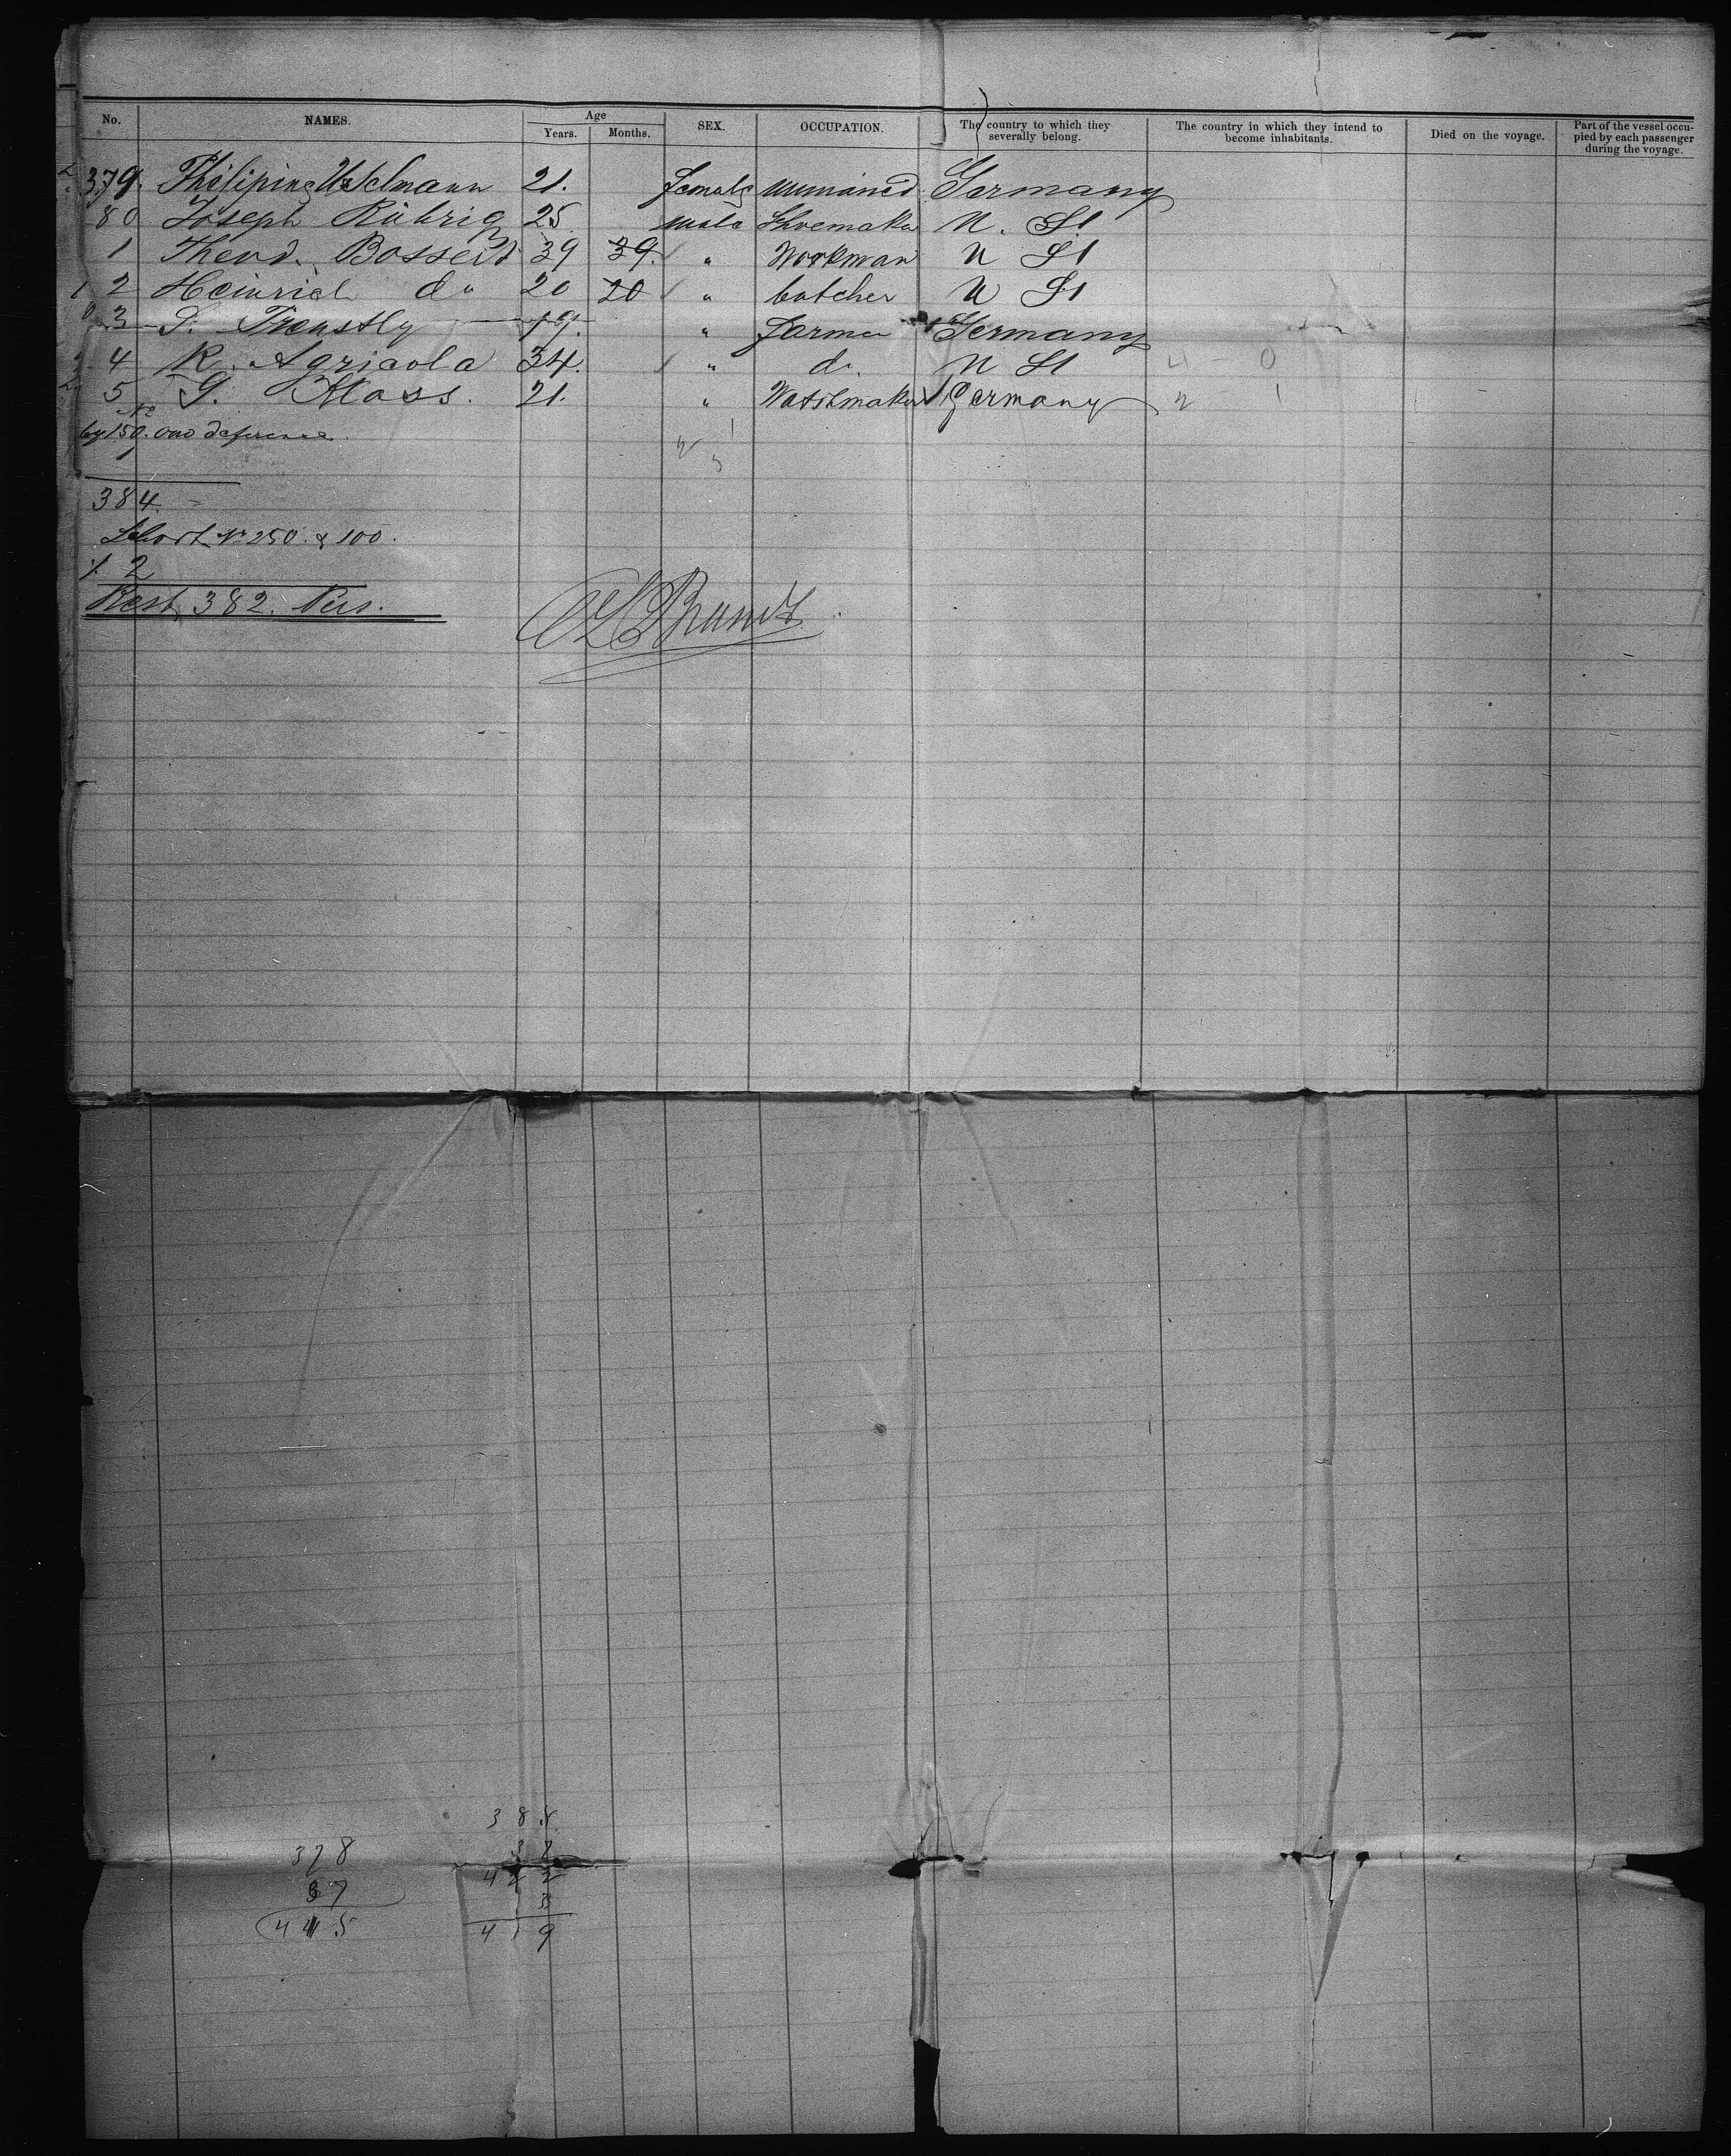 No. NAMES. Age SEX. OCCUPATION. The country to which they severally belong. The country in which they intend to become inhabitants. Died on the voyage. Part of the vessel occupied by each passenger during the voyage.
Years. Months.
379. Philipine 21. female Germany
80 Joseph Rührig 25 male Shoemaker U. St
1 Theod. Bossert 39 39. " Workman U St
2 Heinrich do 20 20 " butcher U St
3 19. " farmer Germany
4 R. Agricola 34. " do. U St 4 - 0
5 G. Klass. 21. " Watchmaker Germany 2 1
No
by 150. one
1
384.
Short No 250. & 100.
2
Rest 382. Pers.
378
37
445
388
37
422
3
419